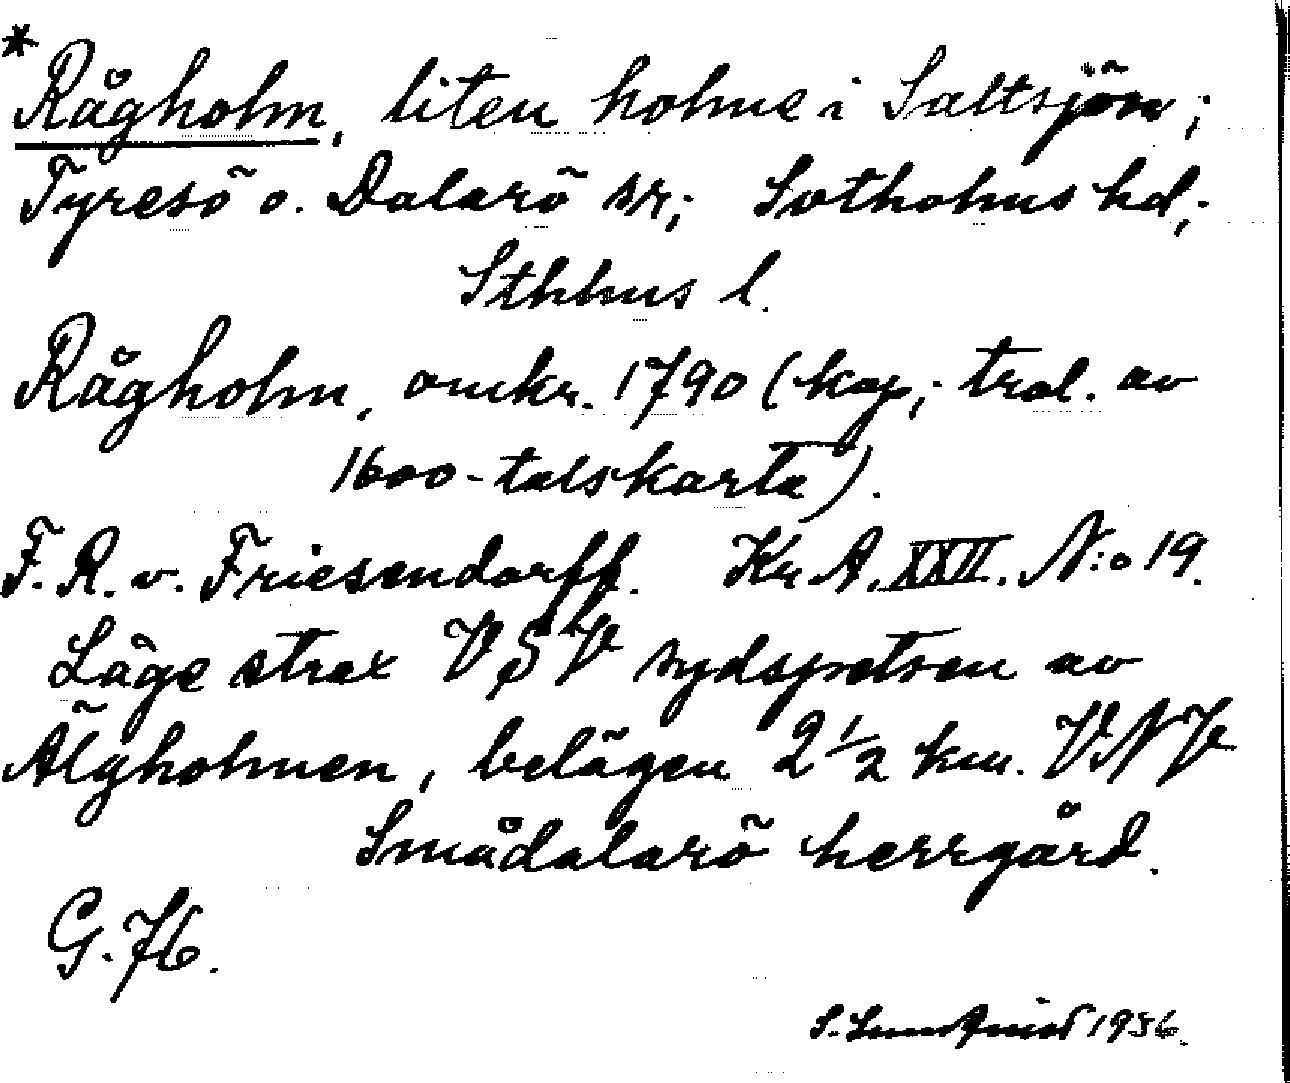 *Rågholm, liten holme i Saltsjön;
Tyresö o. Dalarö sr; Sotholms hd;
Sthlms l.
Rågholm, omkr. 1790 (kop; trol. av
1600-talskarta).
F. R. v. Friesendorff. Kr A. XXII. N:o 19.
Läge strax VSV sydspetsen av
Älgholmen, belägen 2 1/2 km. VNV
Smådalarö herrgård.
G. 76.
S. Lundqvist 1936.